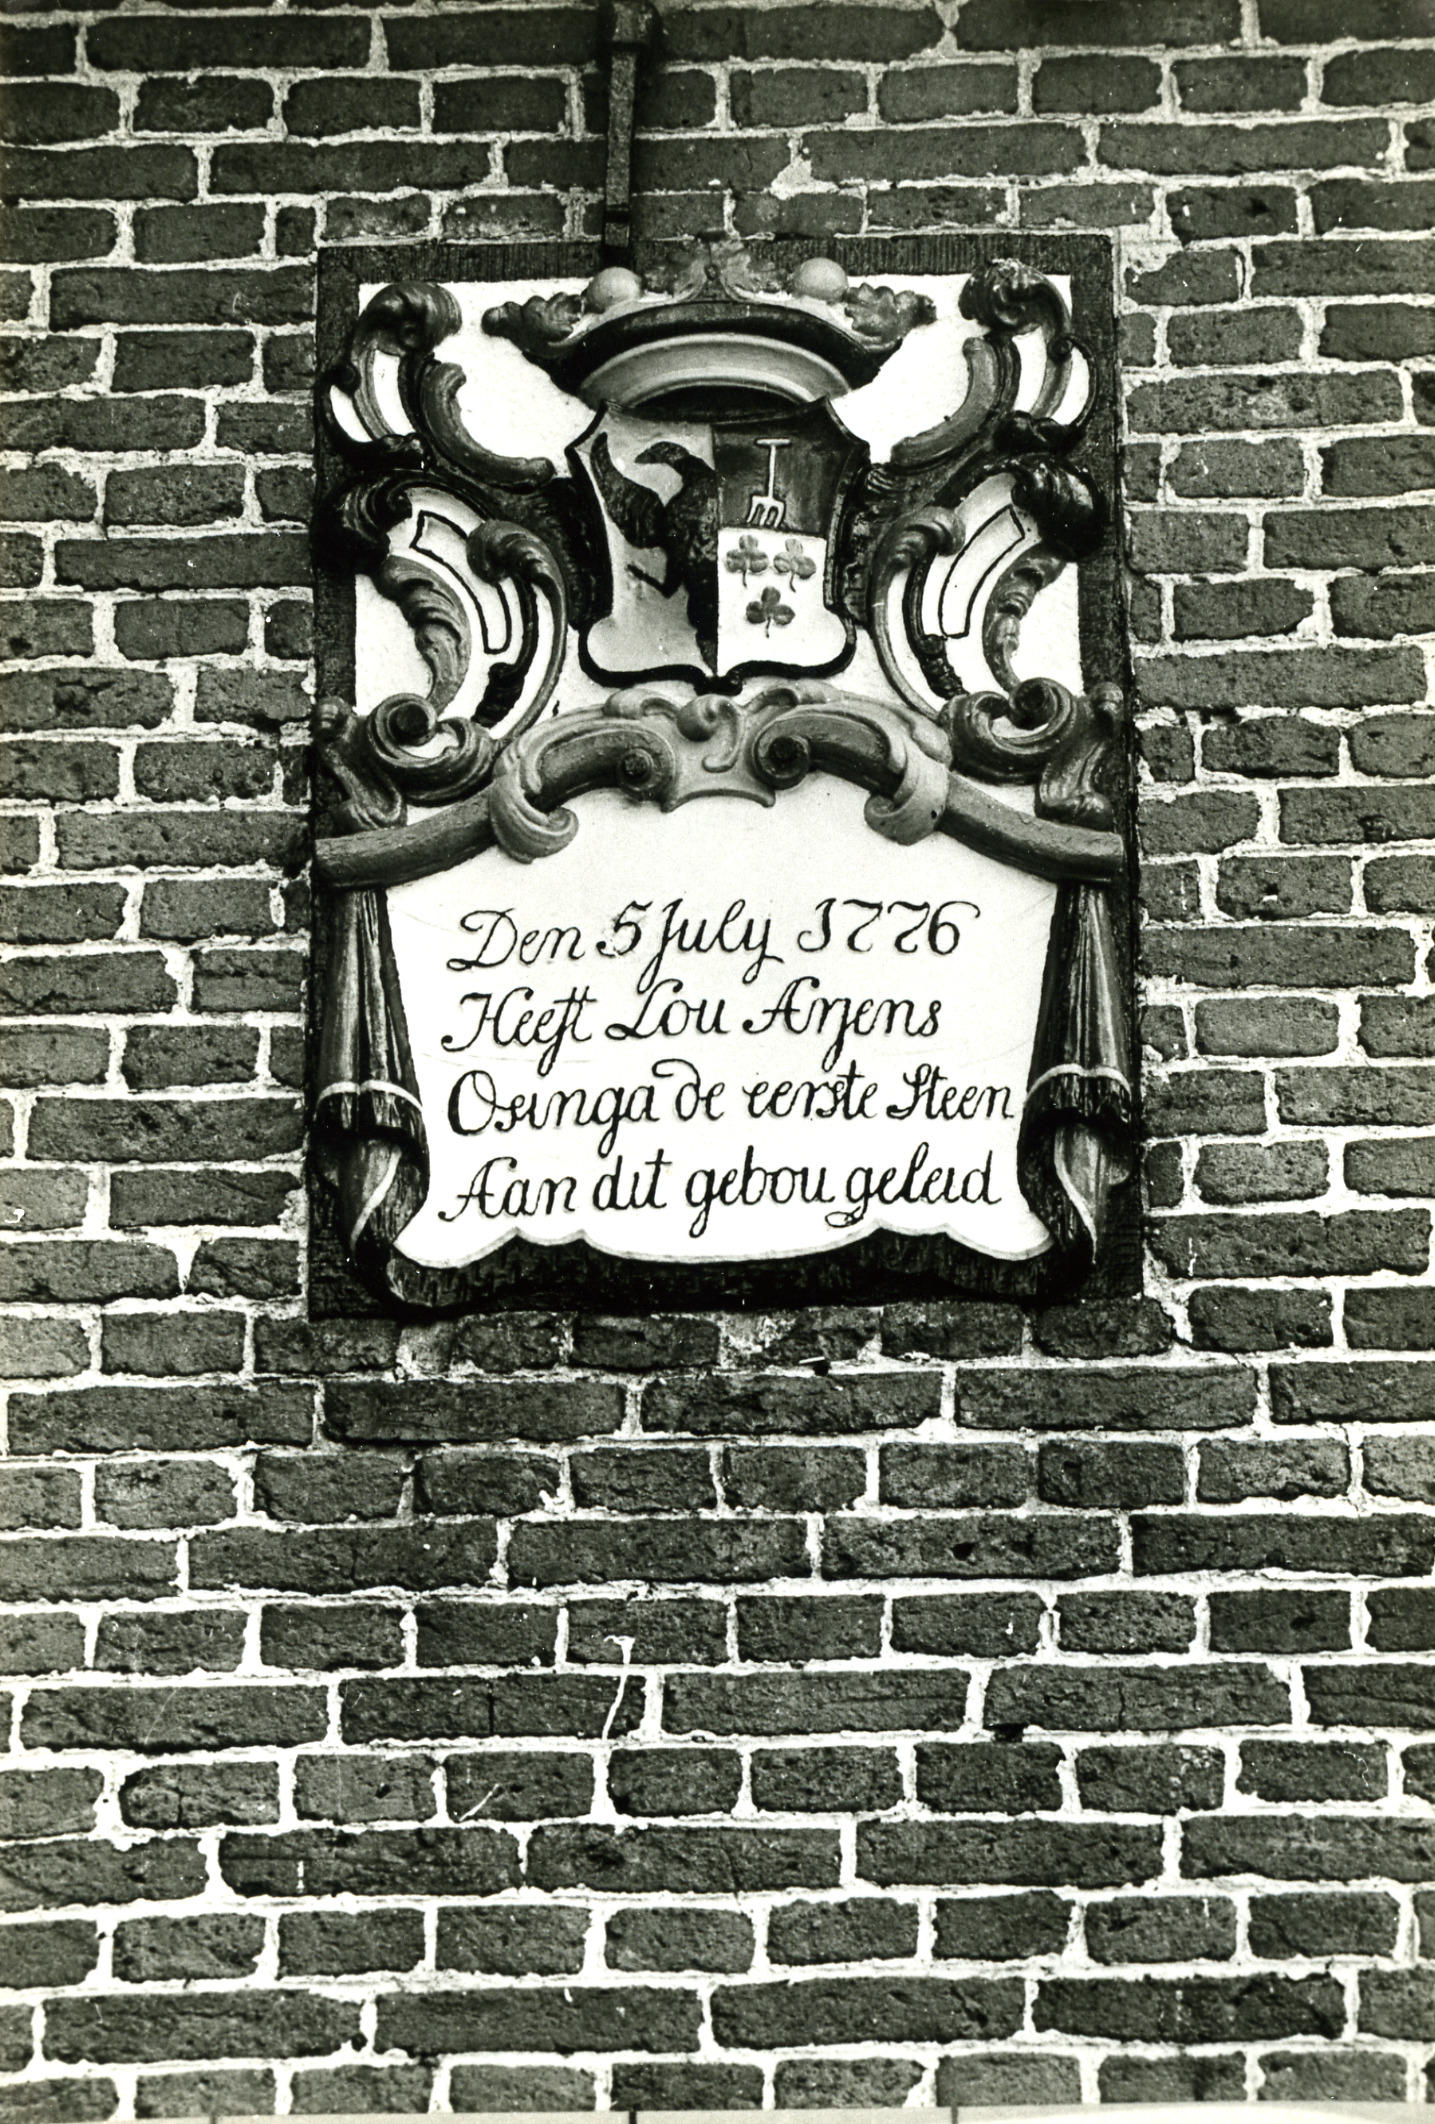 Den 5 July 1776
Heeft Lou Arjens
Osinga de eerste Steen
Aan dit gebou geleid